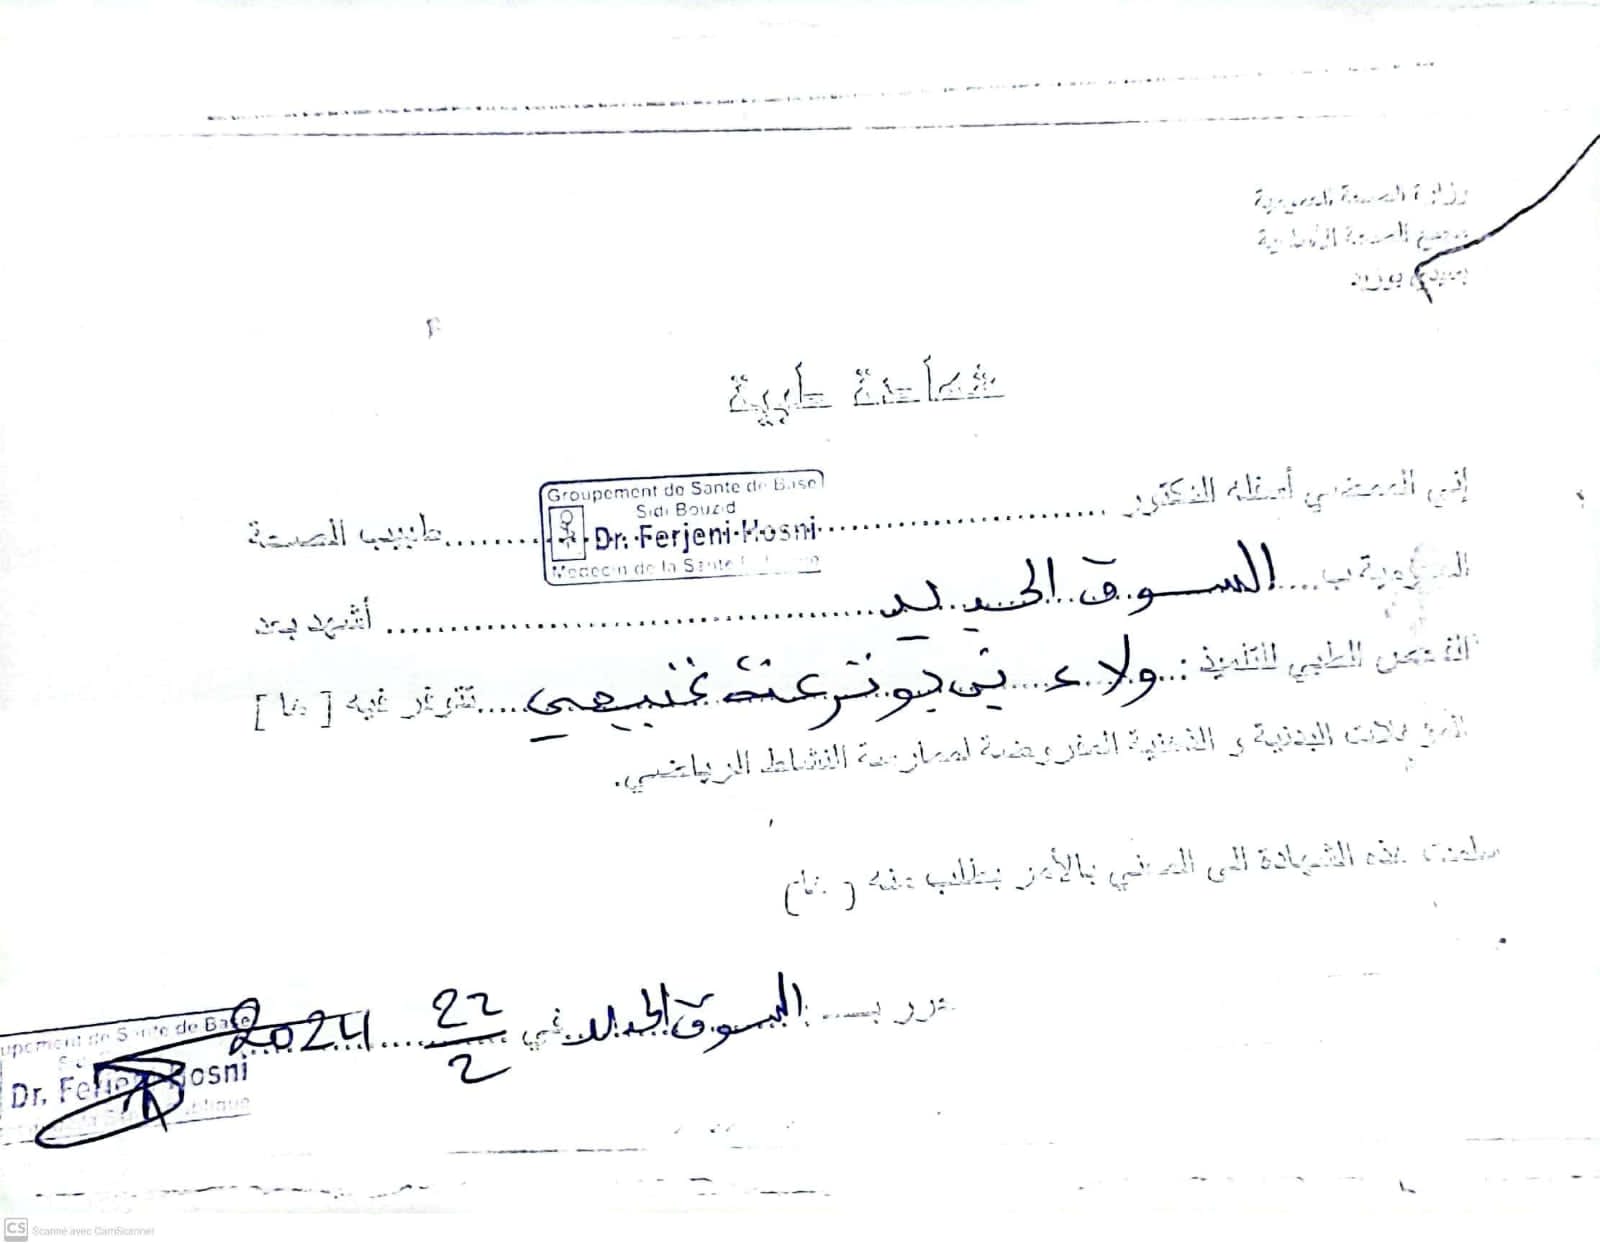 وزارة الصحة العمومية
مجمع الصحة الأساسية
بسيدي بوزيد
شهادة طبية
Groupement de Sante de Base
Sidi Bouzid
إني الممضي أسفله الدكتور ........ Dr. Ferjeni Hosni ........ طبيب الصحة
Medecin de la Sante
العمومية ب .... السوق الجديد ........ أشهد بعد
الفحص الطبي للتلميذ : ولاء بوترعة غنيمي .... تتوفر فيه [ ها ]
المؤهلات البدنية و الذهنية المفروضة لممارسة النشاط الرياضي.
سلمت هذه الشهادة الى المعني بالأمر بطلب منه ( ها )
حرر بـ .... السوق الجديد في 22/2 2024
Groupement de Sante de Base
Dr. Ferjeni Hosni
Publique
CS Scanné avec CamScanner